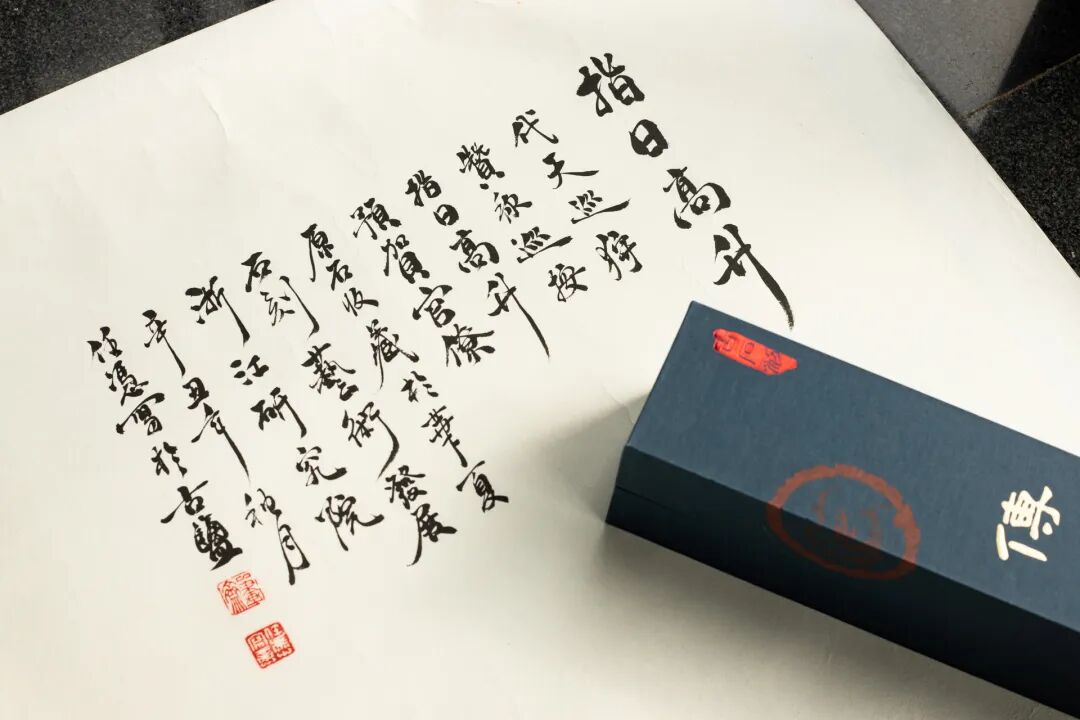 指日高升
代天巡狩
贊欲巡按
指日高升
預賀官僚於華夏
原石收藏藝術發展
石刻
浙江研究院
辛丑年秋月
任憑寫於古鹽
傳